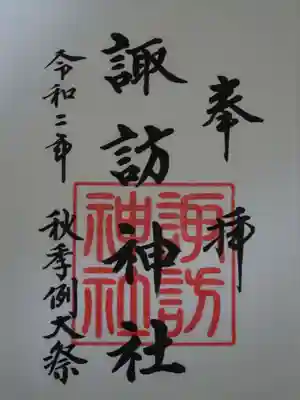 奉拝
諏訪神社
諏訪
神社
令和二年 秋季例大祭